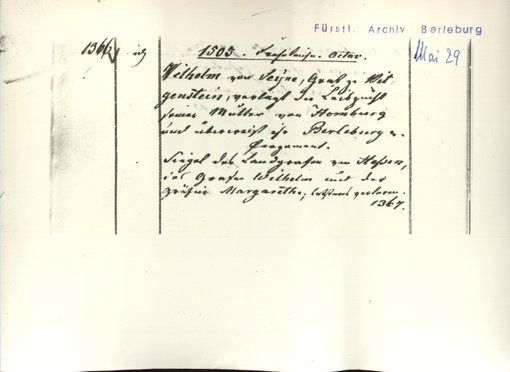 Fürstl. Archiv Berleburg
1505. Octav.
Mai 29
Wilhelm von Seyne, Graf z. Wit-
genstein, verlegt die Leibzucht
seiner Mutter von Homburg
und überweist ihr Berleburg u.
Pergament.
Siegel des Landgrafen von Hessen,
des Grafen Wilhelm und der
Gräfin Margarethe; letzteres verloren.
1367.